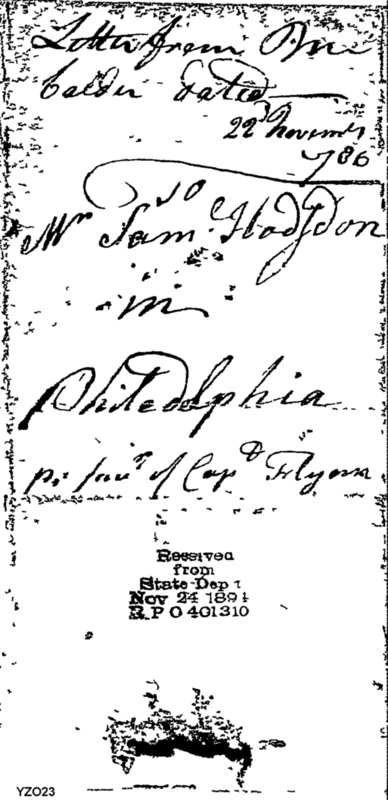 Letter from Wm
Calder dated
22d Novemr
786
To
Mr Saml Hodgdon
in
Philedelphia
pr favr of Capt Flyenn
Received
from
State Dept
Nov 24 1894
R P O 401310
YZO23